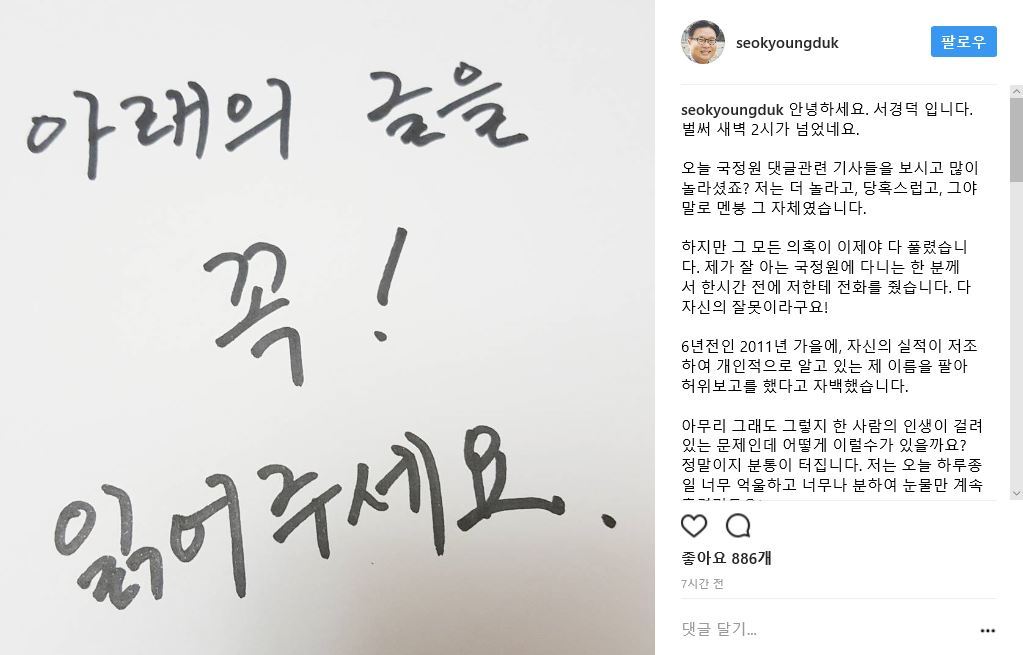 아래의 글을
꼭!
읽어주세요.
seokyoungduk
팔로우
seokyoungduk 안녕하세요. 서경덕 입니다.
벌써 새벽 2시가 넘었네요.
오늘 국정원 댓글관련 기사들을 보시고 많이
놀라셨죠? 저는 더 놀라고, 당혹스럽고, 그야
말로 멘붕 그 자체였습니다.
하지만 그 모든 의혹이 이제야 다 풀렸습니
다. 제가 잘 아는 국정원에 다니는 한 분께
서 한시간 전에 저한테 전화를 줬습니다. 다
자신의 잘못이라구요!
6년전인 2011년 가을에, 자신의 실적이 저조
하여 개인적으로 알고 있는 제 이름을 팔아
허위보고를 했다고 자백했습니다.
아무리 그래도 그렇지 한 사람의 인생이 걸려
있는 문제인데 어떻게 이럴수가 있을까요?
정말이지 분통이 터집니다. 저는 오늘 하루종
일 너무 억울하고 너무나 분하여 눈물만 계속
좋아요 886개
7시간 전
댓글 달기...